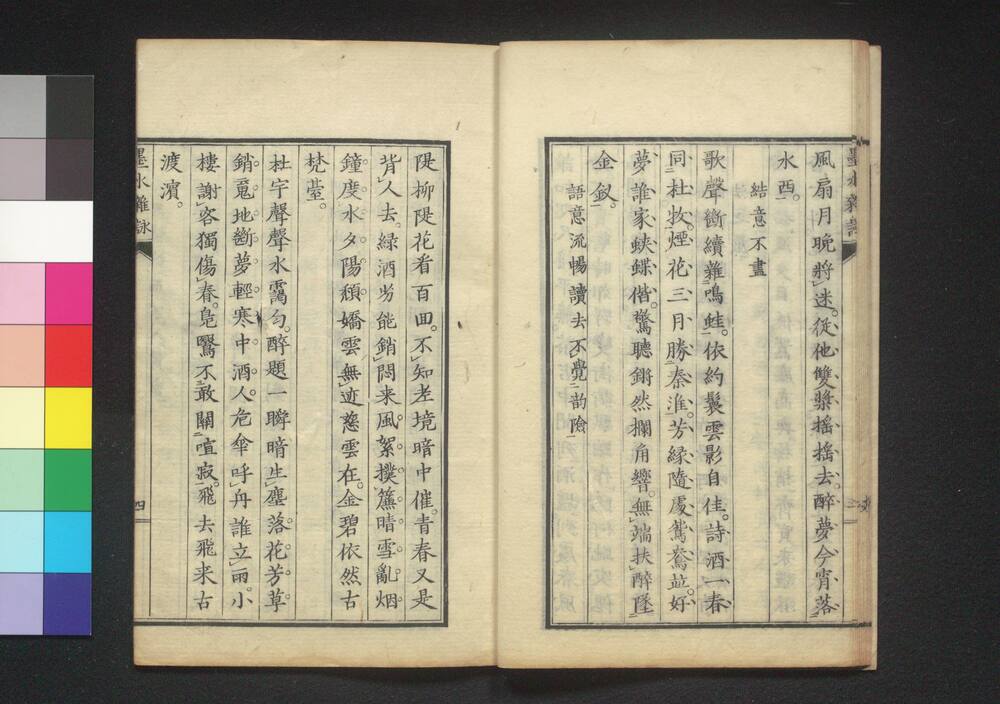 風扇月晩將迷。從他雙槳搖搖去。醉夢今宵落
水西。
結意不盡
歌聲斷續雜鳴蛙。依約鬟雲影自佳。詩酒一春
同杜牧。煙花三月勝秦淮。芳緣隨處鴛鴦並。好
夢誰家蛺蝶偕。驚聽鏘然攔角響。無端扶醉墜
金釵。
語意流暢讀去不覺韵險
隄柳隄花看百回。不知老境暗中催。青春又是
背人去。綠酒労能銷悶来。風絮撲簾晴雪亂。烟
鐘度水夕陽頽。嬌雲無迹慈雲在。金碧依然古
梵臺。
杜宇聲聲水靄匀。醉題一瞬暗生塵。落花芳草
銷䰟地。斷夢輕寒中酒人。危傘呼舟誰立雨。小
樓謝客獨傷春。鳧鷖不敢關喧寂。飛去飛来古
渡濱。
墨水雜詠
四